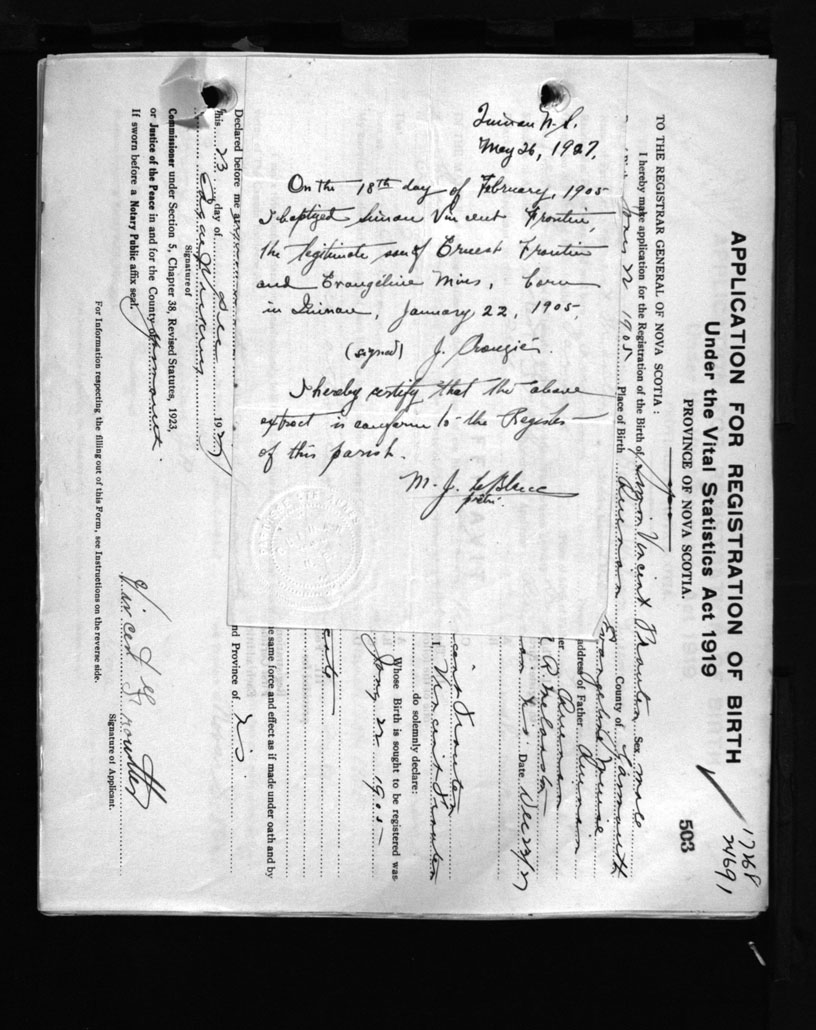 Quinan N.S.
May 26, 1927.
On the 18th day of February, 1905
I baptized Simon Vincent Frontin,
the legitimate son of Ernest Frontin
and Evangeline Mius, born
in Quinan, January 22, 1905.
(signed) J. Crouzier.
I hereby certify that the above
extract is conform to the Register
of this parish.
M. J. LeBlanc
ptre.
17268
24691
503
APPLICATION FOR REGISTRATION OF BIRTH
Under the Vital Statistics Act 1919
PROVINCE OF NOVA SCOTIA.
TO THE REGISTRAR GENERAL OF NOVA SCOTIA :
I hereby make application for the Registration of the Birth of Vincent sex male
22 1905 Place of Birth Quinan County of Yarmouth
Evangeline Muise
Address of Father Quinan
Quinan
N.S. Date Dec 23/27
Vincent
do solemnly declare:
Whose Birth is sought to be registered was
Jany 22 1905
e same force and effect as if made under oath and by
Declared before me at nd Province of N.S.
this 23 day of Dec 1927
Signature of
Commissioner under Section 5, Chapter 38, Revised Statutes, 1923,
or Justice of the Peace in and for the County of Yarmouth.
If sworn before a Notary Public affix seal.
Vincent
Signature of Applicant.
For Information respecting the filling out of this Form, see Instructions on the reverse side.